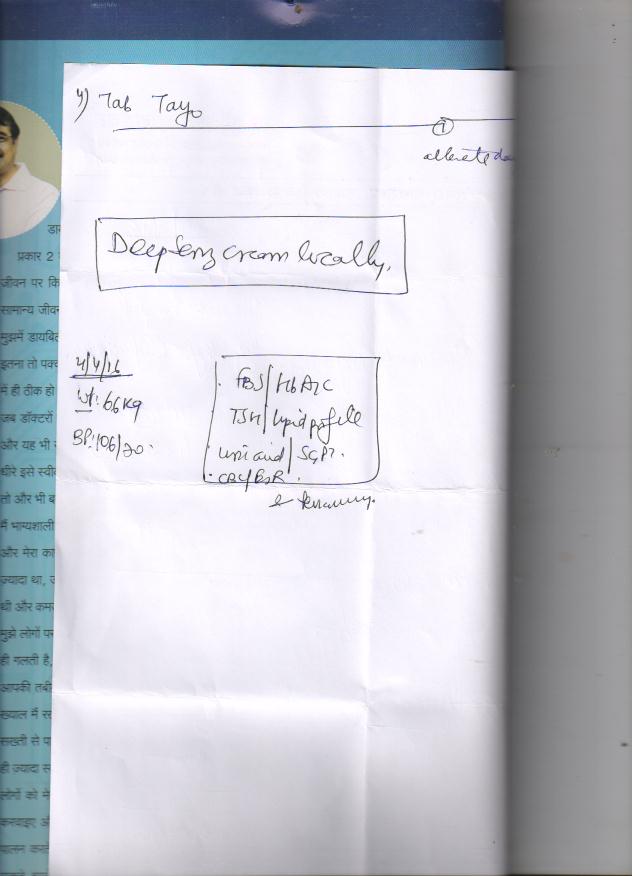 4) Tab Tayo
1
alternate da
DeepSenz cream locally.
4/4/16
Wt: 66 kg
BP: 106/70.
FBS / HbA1C
TSH / Lipid profile
Uric acid / SGPT.
CBC/ESR.
डा
प्रकार 2
जीवन पर कि
सामान्य जीव
मुझमें डायबि
इतना तो पक
में ही ठीक हो
जब डॉक्टरों
और यह भी
धीरे इसे स्वी
तो और भी ब
मैं भाग्यशाली
और मेरा का
ज़्यादा था,
थी और कम
मुझे लोगों प
ही गलती है,
आपकी तबी
ख्याल में र
सख्ती से पा
ही ज़्यादा स
लोगों को मे
करवाइए औ
पालन कर